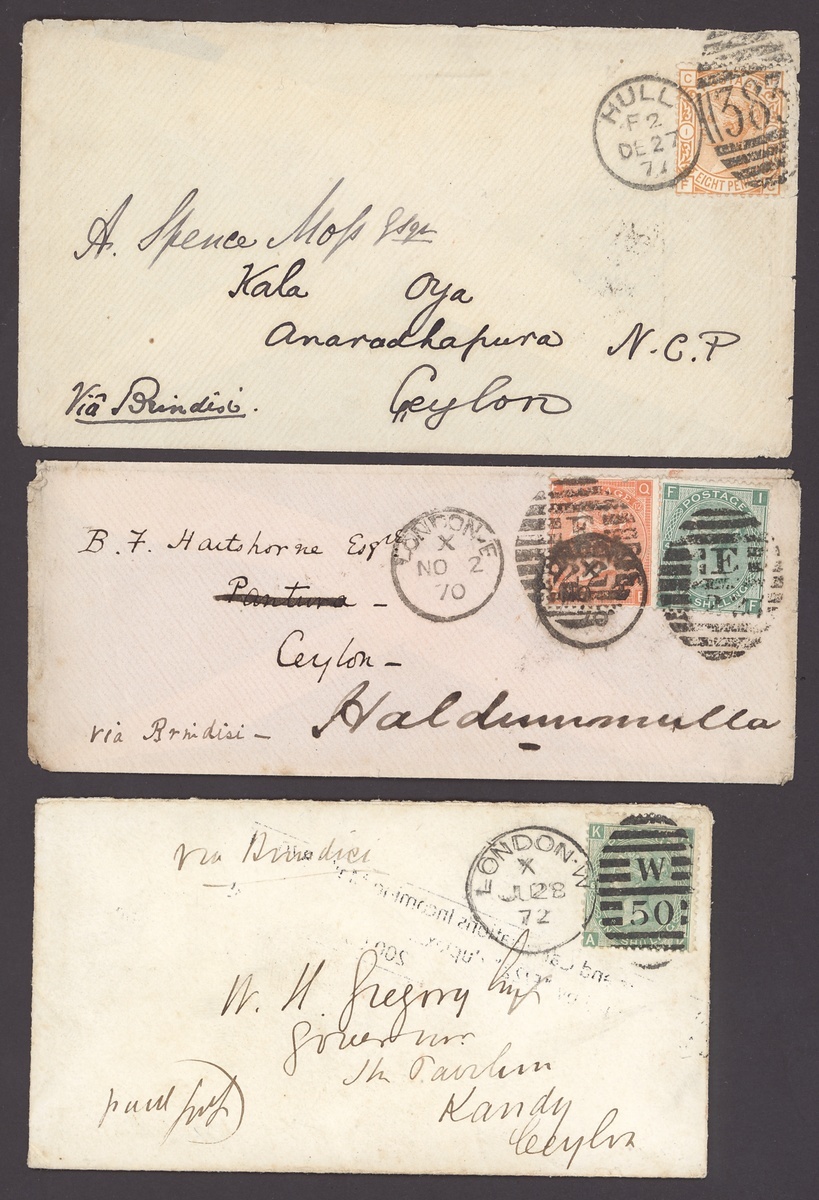 HULL
F2
DE 27
77
383
EIGHT PEN
A. Spence Moss Esqr
Kala Oya
Anaradhapura N.C.P
Ceylon
Viâ Brindisi.
LONDON-E
X
NO 2
70
POSTAGE
F I
E
SHILLING
B. F. Hartshorne Esqre
Pantura -
Ceylon -
via Brindisi -
Haldummulla
via Brindisi
LONDON-W
X
JU 28
72
K
W
50
A
W. H. Gregory Esq
Governor
The Pavilion
Kandy
Ceylon